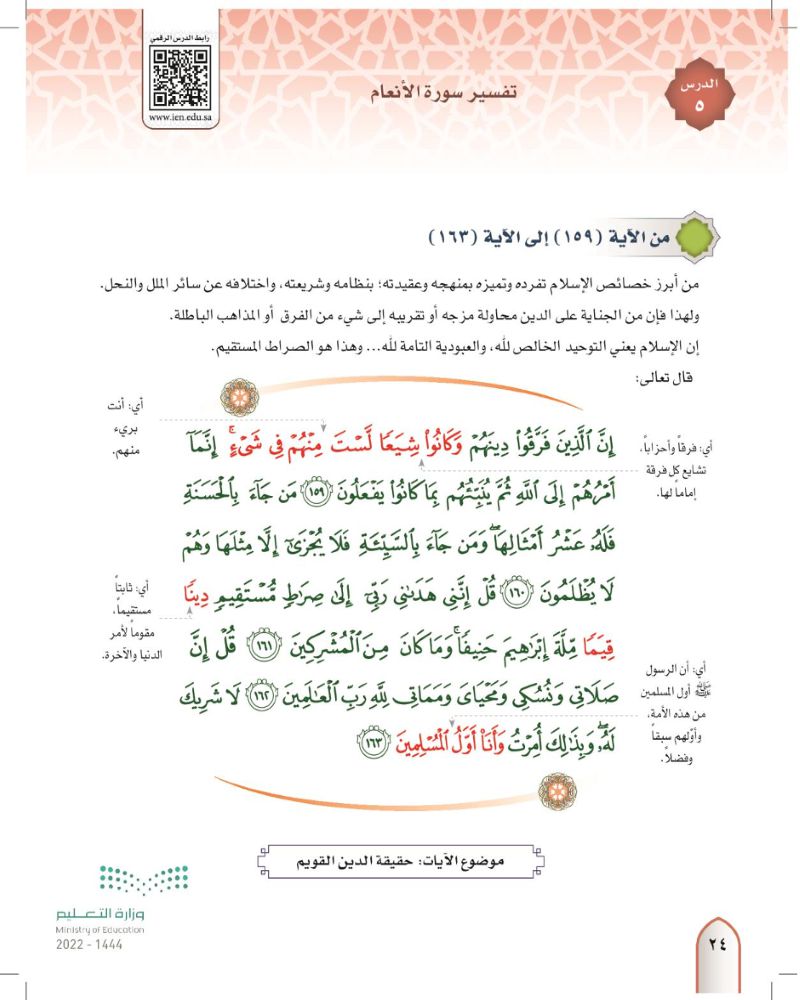 رابط الدرس الرقمي
www.ien.edu.sa
الدرس
٥
تفسير سورة الأنعام
من الآية (١٥٩) إلى الآية (١٦٣)
من أبرز خصائص الإسلام تفرده وتميزه بمنهجه وعقيدته؛ بنظامه وشريعته، واختلافه عن سائر الملل والنحل.
ولهذا فإن من الجناية على الدين محاولة مزجه أو تقريبه إلى شيء من الفرق أو المذاهب الباطلة.
إن الإسلام يعني التوحيد الخالص لله، والعبودية التامة لله... وهذا هو الصراط المستقيم.
قال تعالى:
إِنَّ ٱلَّذِينَ فَرَّقُواْ دِينَهُمْ وَكَانُواْ شِيَعًا لَّسْتَ مِنْهُمْ فِى شَىْءٍ ۚ إِنَّمَآ
أَمْرُهُمْ إِلَى ٱللَّهِ ثُمَّ يُنَبِّئُهُم بِمَا كَانُواْ يَفْعَلُونَ ١٥٩ مَن جَآءَ بِٱلْحَسَنَةِ
فَلَهُۥ عَشْرُ أَمْثَالِهَا ۖ وَمَن جَآءَ بِٱلسَّيِّئَةِ فَلَا يُجْزَىٰٓ إِلَّا مِثْلَهَا وَهُمْ
لَا يُظْلَمُونَ ١٦٠ قُلْ إِنَّنِى هَدَىٰنِى رَبِّىٓ إِلَىٰ صِرَٰطٍ مُّسْتَقِيمٍ دِينًا
قِيَمًا مِّلَّةَ إِبْرَٰهِيمَ حَنِيفًا ۚ وَمَا كَانَ مِنَ ٱلْمُشْرِكِينَ ١٦١ قُلْ إِنَّ
صَلَاتِى وَنُسُكِى وَمَحْيَاىَ وَمَمَاتِى لِلَّهِ رَبِّ ٱلْعَٰلَمِينَ ١٦٢ لَا شَرِيكَ
لَهُۥ ۖ وَبِذَٰلِكَ أُمِرْتُ وَأَنَا۠ أَوَّلُ ٱلْمُسْلِمِينَ ١٦٣
أي: فرقاً وأحزاباً،
تشايع كل فرقة
إماماً لها.
أي: أنت
بريء
منهم.
أي: ثابتاً
مستقيماً،
مقوماً لأمر
الدنيا والآخرة.
أي: أن الرسول
ﷺ أول المسلمين
من هذه الأمة،
وأوّلهم سبقاً
وفضلاً.
موضوع الآيات: حقيقة الدين القويم
وزارة التعليم
Ministry of Education
2022 - 1444
٢٤